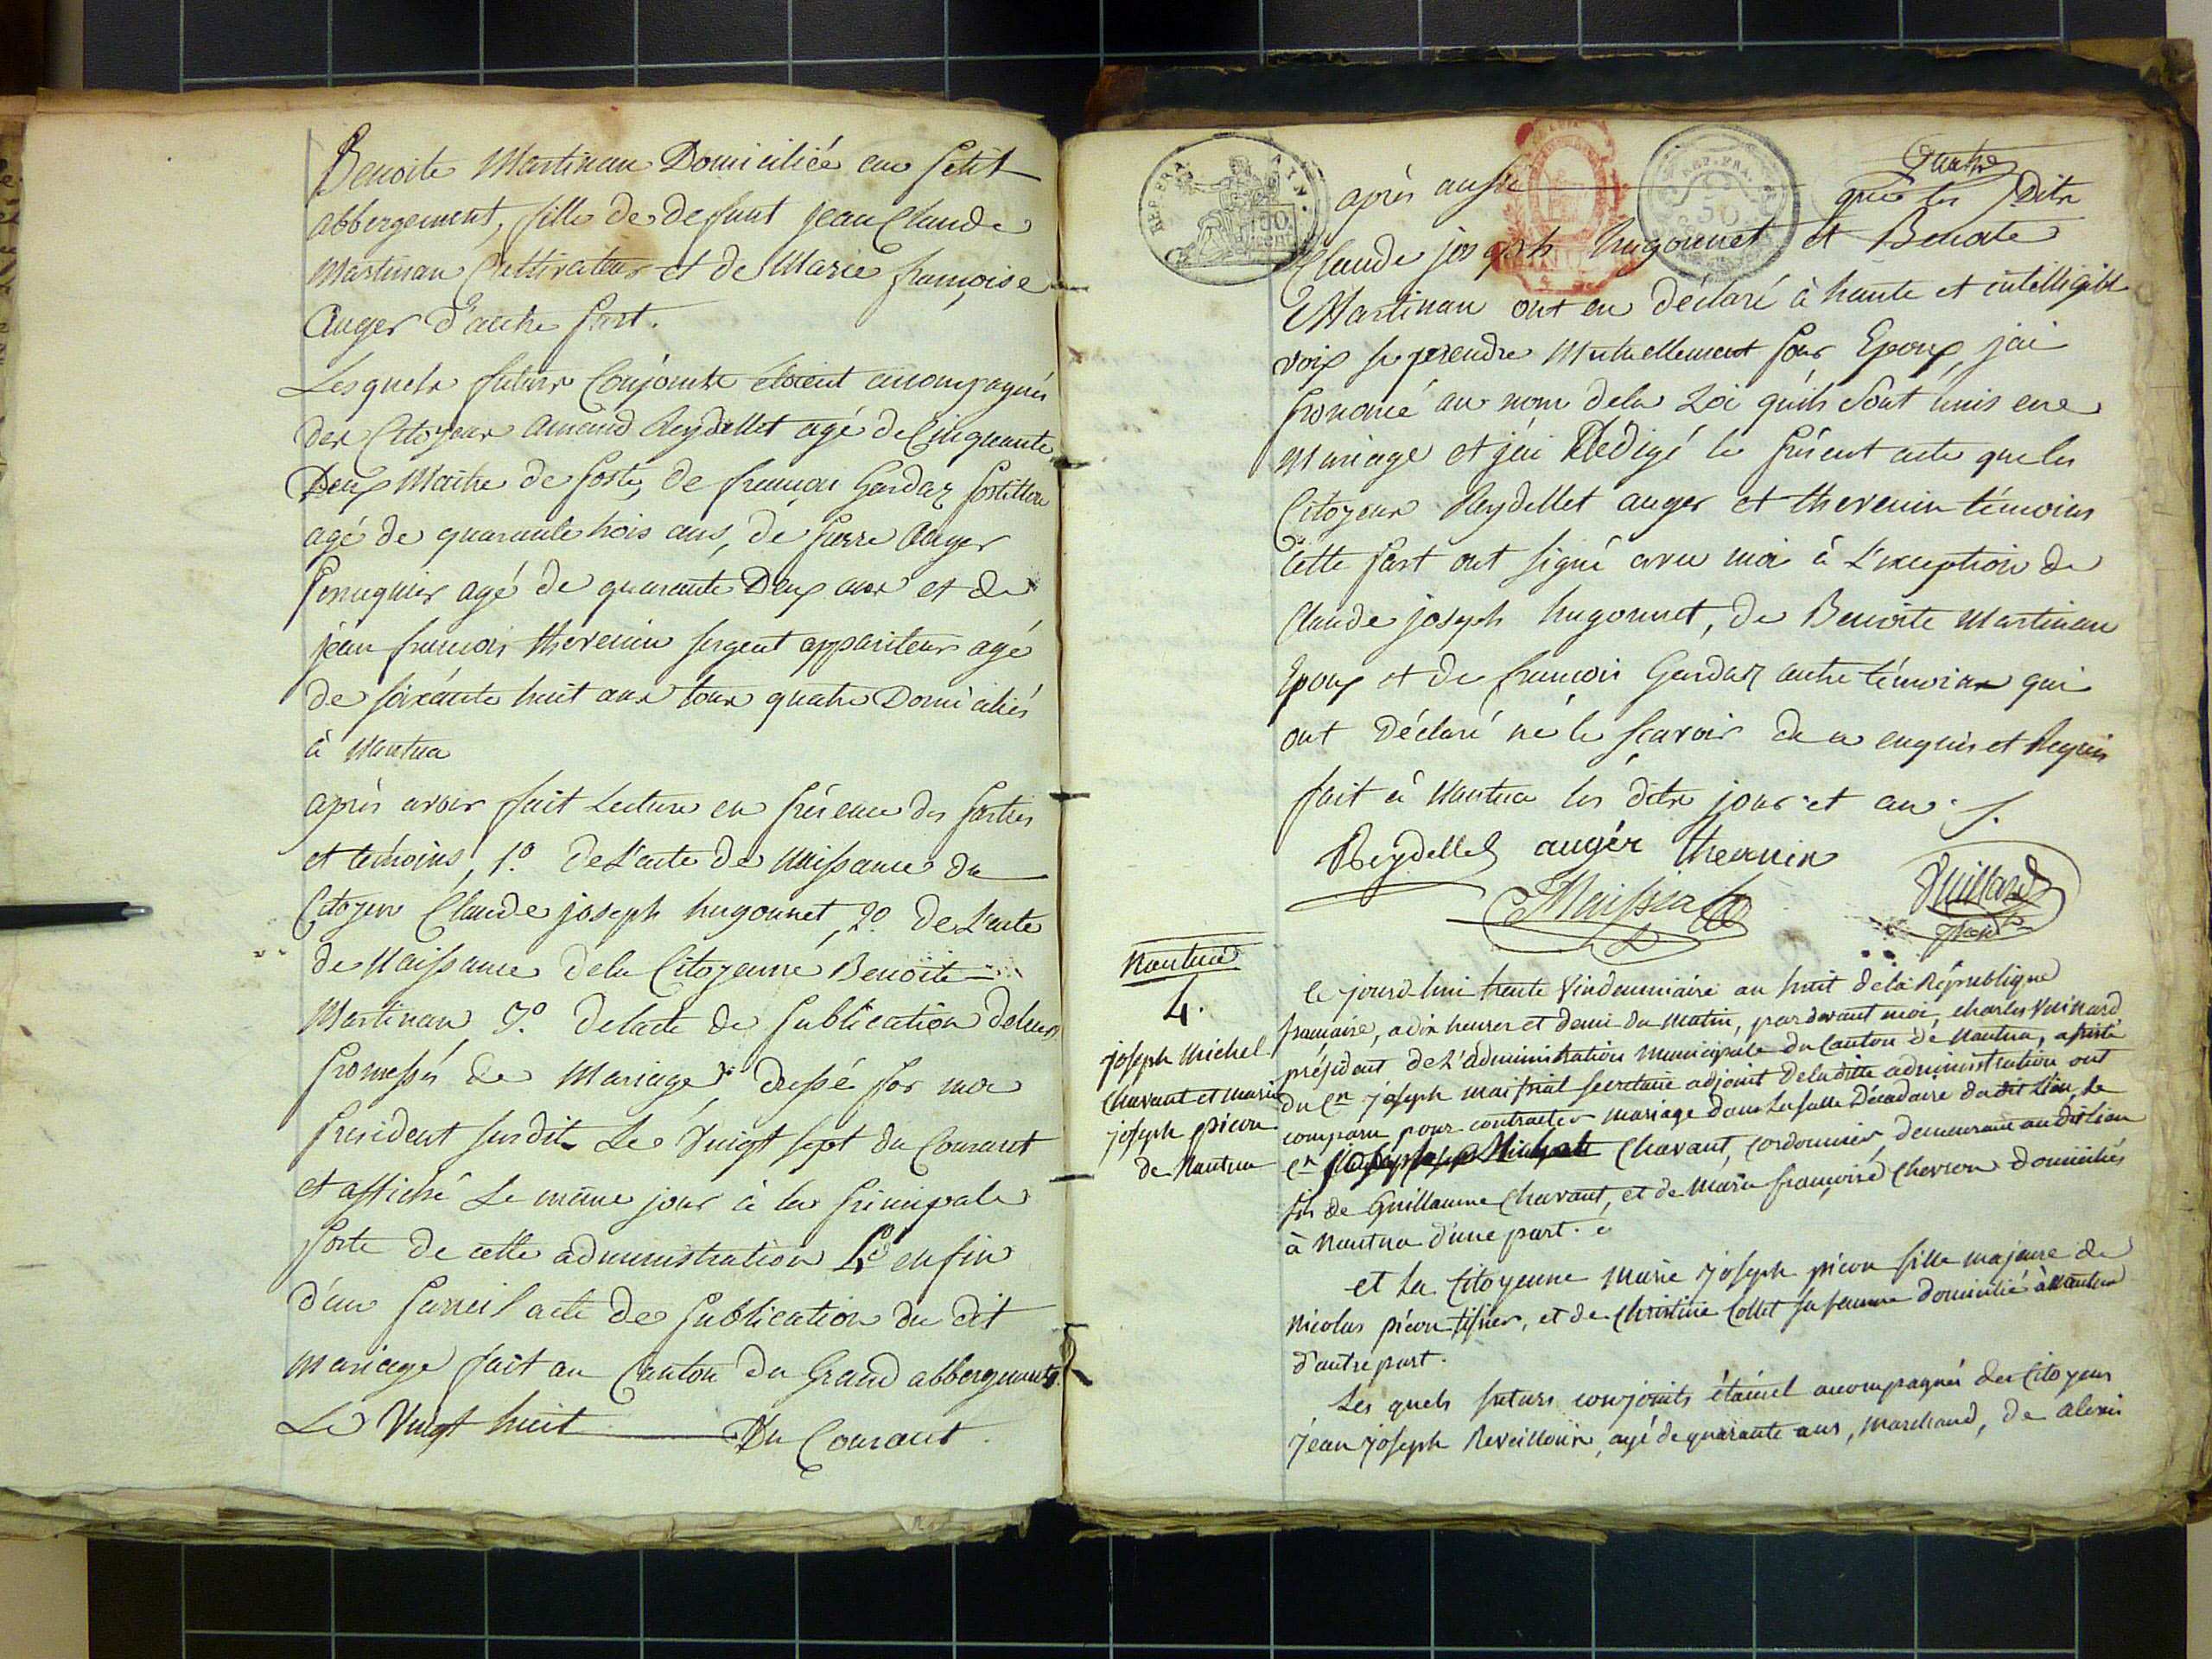 Benoite Martinan Domiciliée au petit
abbergement, fille de defunt jean Claude
Martinan Cultivateur et de Marie françoise
Auger D'autre part.
Les quels futurs Conjoints étoient accompagnés
des Citoyens Amand Reydellet agé de Cinquante
Deux Maitre de poste, de francois Gardaz postillon
agé de quarante trois ans, de pierre Auger
perruquier agé de quarante Deux ans et de
jean francois thevenin sergent appariteur agé
de soixante huit ans tous quatre Domiciliés
à Nantua
après avoir fait Lecture en présence des parties
et témoins, 1.º De L'acte de Naissance du
Citoyen Claude joseph hugonnet, 2º. De L'acte
de Naissance dela Citoyenne Benoite
Martinan, 3.º Delacte de publication deleurs
promesses de Mariage, dressé par moi
president susdit Le Vingt sept du Courant
et affiché Le même jour à la principale
porte de cette administration 4º enfin
d'un pareil acte de publication du dit
mariage fait au Canton du Grand abbergement
Le Vingt huit Du Courant.
REP. FRA. AYN.
50 cent
REP. FRA.
50
Quatre
après aussi que les Dits
Claude joseph hugonnet et Benoite
Martinan ont eu déclaré à haute et intelligible
voix se prendre Mutuellement pour Epoux, jai
prononcé au nom dela Loi qu'ils Sont unis en
Mariage et j'ai Rédigé le présent acte que les
Citoyens Reydellet auger et thevenin témoins
Cette part ont signé avec moi à L'exception de
Claude joseph hugonnet, de Benoite Martinan
Epoux et de francois Gardaz autre témoins qui
ont Déclaré ne le sçavoir de ce enquis et Requis
fait à Nantua les dits jour et an.
Reydellet augér thevenin
Maissiat Vuillard
présdt
Nantua
4.
joseph Michel
Chavant et marie
joseph picon
de Nantua
Ce jourd-hui trente Vindemiaire an huit dela République
francaise, a dix heures et demi du matin, pardevant moi, charles Vuillard
président de L'administration municipale du Canton de Nantua, assisté
du Cn. joseph maissiat secretaire adjoint dela ditte administration ont
comparu pour contracter mariage dans La salle Décadaire dudit Lieu, Le
Cn joseph Michel Chavant, cordonnier, demeurant audit Lieu
fils de Guillaume Chavant, et de marie françoise Chevron domiciliés
à Nantua d'une part.
et La Citoyenne Marie joseph picon fille majeure de
Nicolas picon tissier, et de Christine Collet sa femme domicilié à Nantua
d'autre part.
Les quels futurs conjoints étaient accompagnés des Citoyens
jean joseph Reveilloux, agé de quarante ans, marchand, de alexis